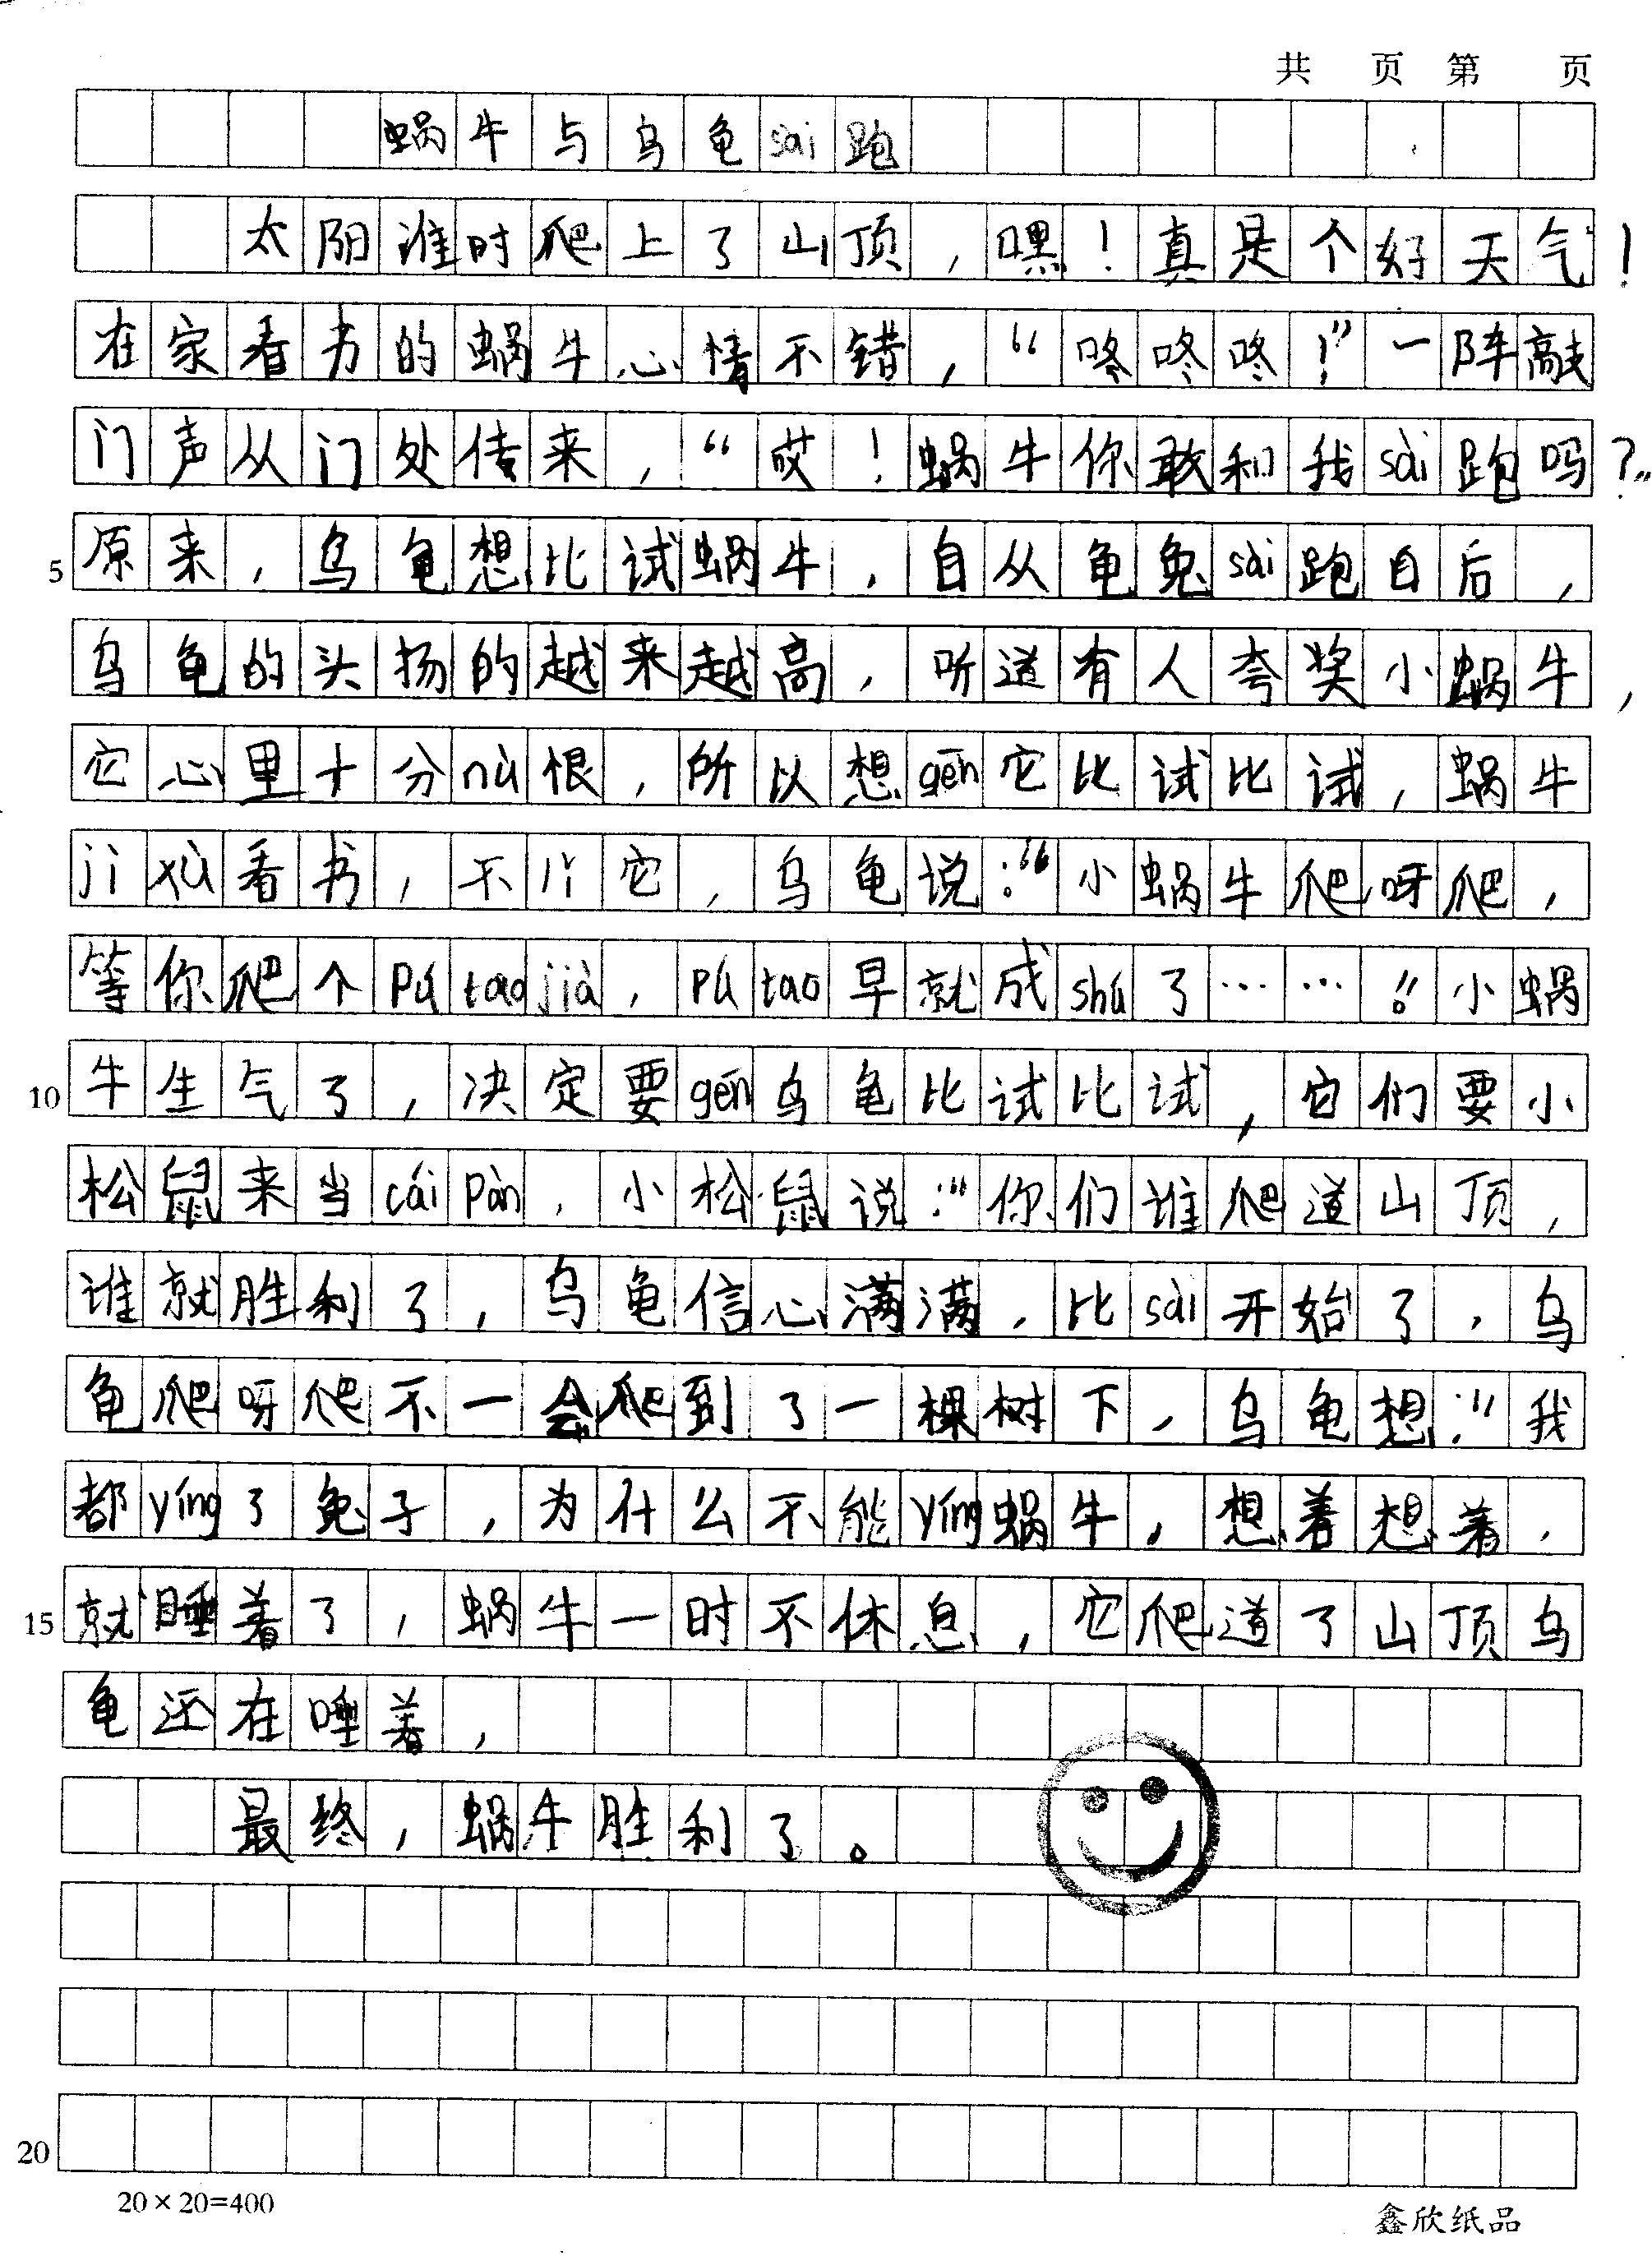 共 页 第 页
蜗牛与乌龟sài跑
太阳谁时爬上了山顶，嘿！真是个好天气！
在家看书的蜗牛心情不错，“咚咚咚！”一阵敲
门声从门处传来，“哎！蜗牛你敢和我sài跑吗？”
5 原来，乌龟想比试蜗牛，自从龟兔sài跑自后，
乌龟的头扬的越来越高，听道有人夸奖小蜗牛，
它心里十分nù恨，所以想gēn它比试比试，蜗牛
jì xù看书，不它，乌龟说：“小蜗牛爬呀爬，
等你爬个pú tao jià，pú tao早就成shú了……！”小蜗
10 牛生气了，决定要gēn乌龟比试比试，它们要小
松鼠来当cái pàn，小松鼠说：“你们谁爬道山顶，
谁就胜利了，乌龟信心满满，比sài开始了，乌
龟爬呀爬不一会爬到了一棵树下，乌龟想：“我
都yíng了兔子，为什么不能yíng蜗牛，想着想着，
15 就睡着了，蜗牛一时不休息，它爬道了山顶乌
龟还在睡着，
最终，蜗牛胜利了。
20
20×20=400 鑫欣纸品